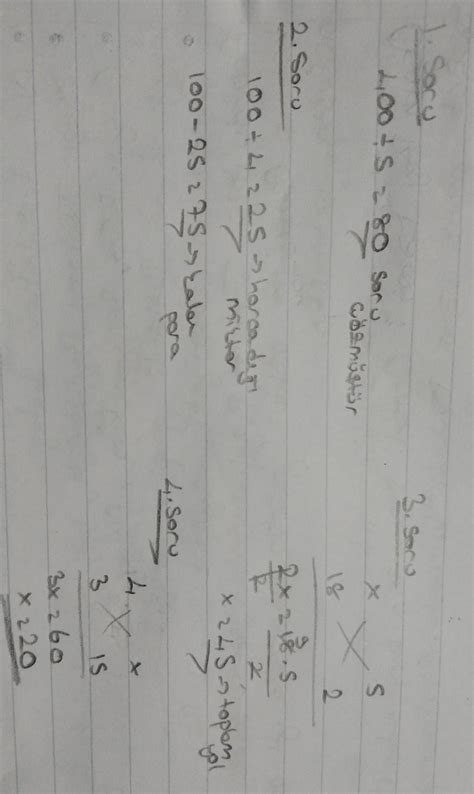 1. Soru
400 ÷ 5 = 80 soru
çözmüştür
2. Soru
100 ÷ 4 = 25 → harcadığı
miktar
100 - 25 = 75 → kalan
para
3. Soru
x 5
18 2
2x = 18 . 5
2 2
9
x = 45 → toplam
yol
4. Soru
4 x
3 15
3x = 60
x = 20